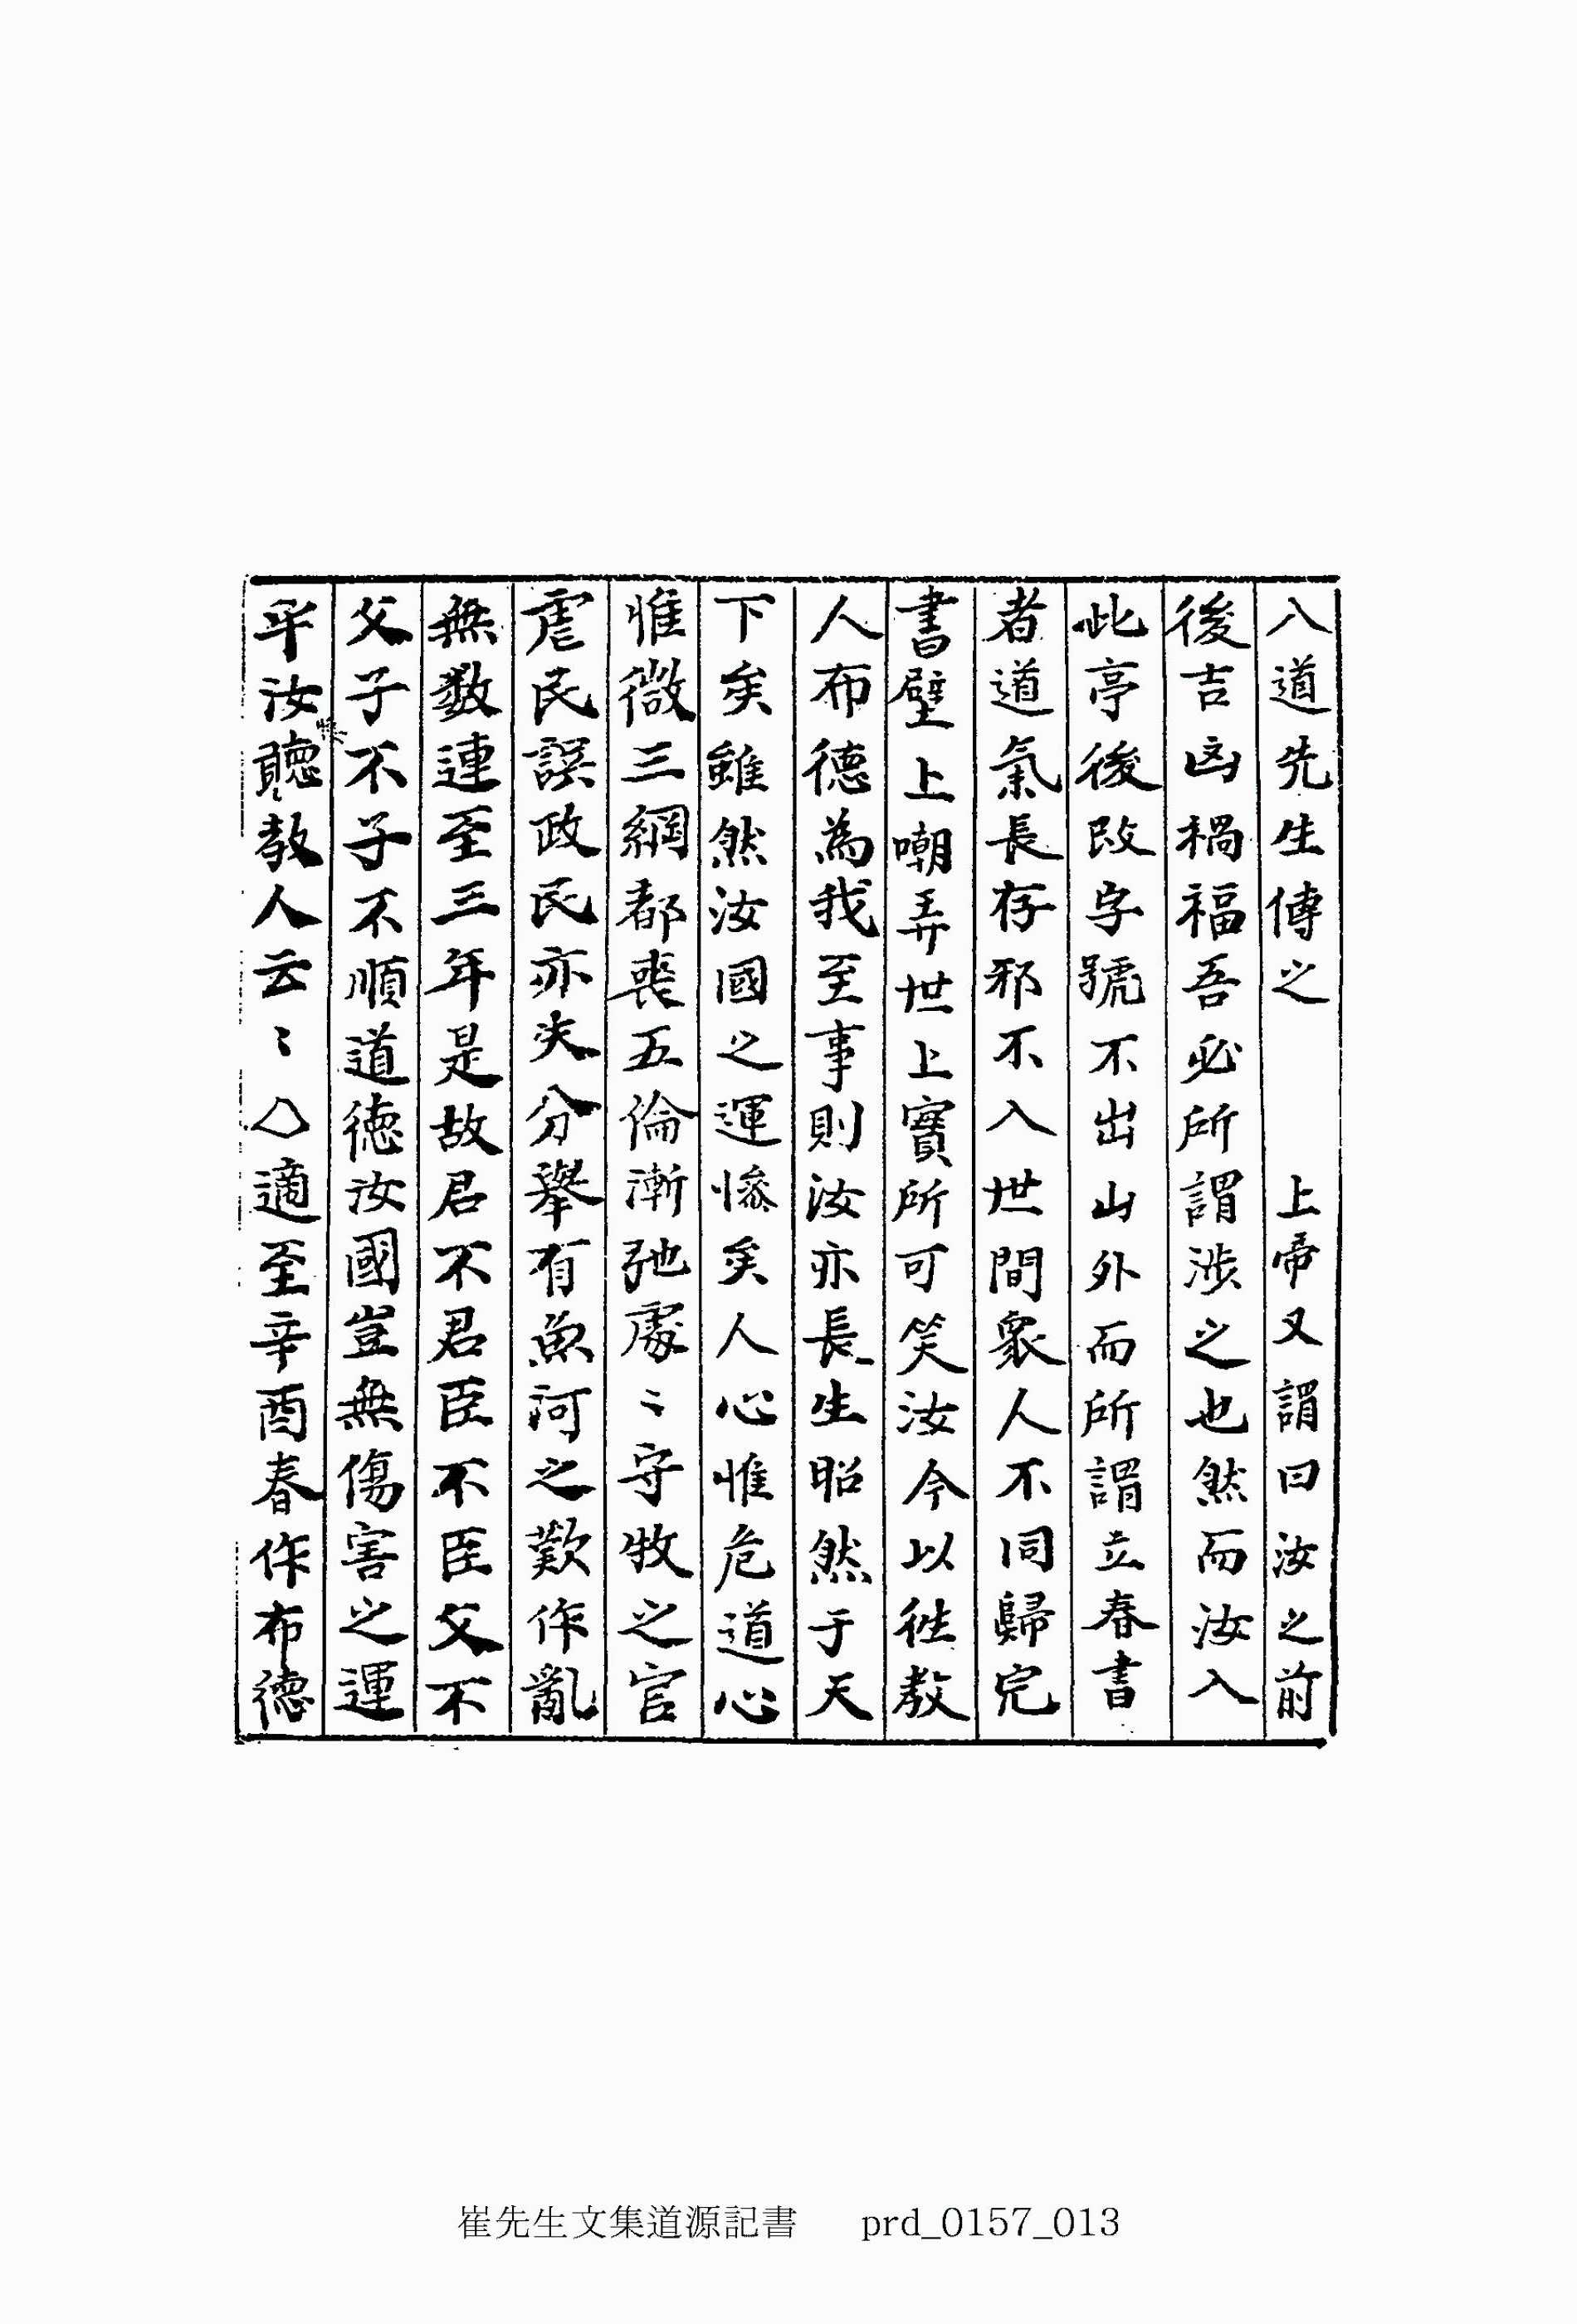 入道先生傳之　　上帝又謂曰汝之前
後吉凶禍福吾必所謂涉之也然而汝入
此亭後改字號不出山外而所謂立春書
者道氣長存邪不入世間衆人不同歸完
書壁上嘲弄世上實所可笑汝今以往教
人布德為我至事則汝亦長生昭然于天
下矣雖然汝國之運慘矣人心惟危道心
惟微三綱都喪五倫漸弛處〻守牧之官
虐民誤政民亦失分擧有魚河之歎作亂
無數連至三年是故君不君臣不臣父不
父子不子不順道德汝國豈無傷害之運
乎汝聽教人云〻△適至辛酉春作布德
崔先生文集道源記書 prd_0157_013